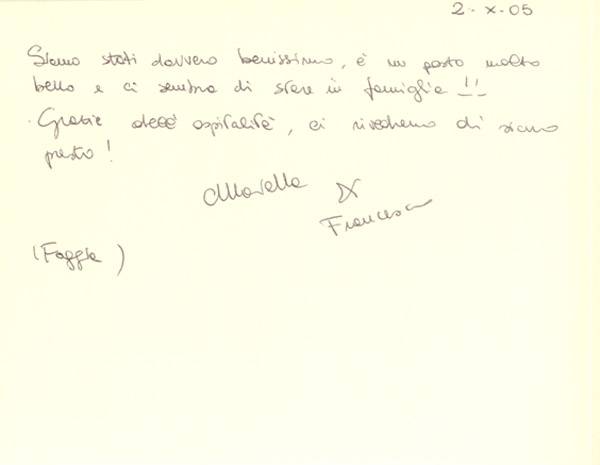 2 - X - 05
Siamo stati davvero benissimo, è un posto molto
bello e ci sembra di stare in famiglia!!
Grazie dell' ospitalità, ci rivedremo di sicuro
presto!
Mariella &
Francesca
(Foggia)